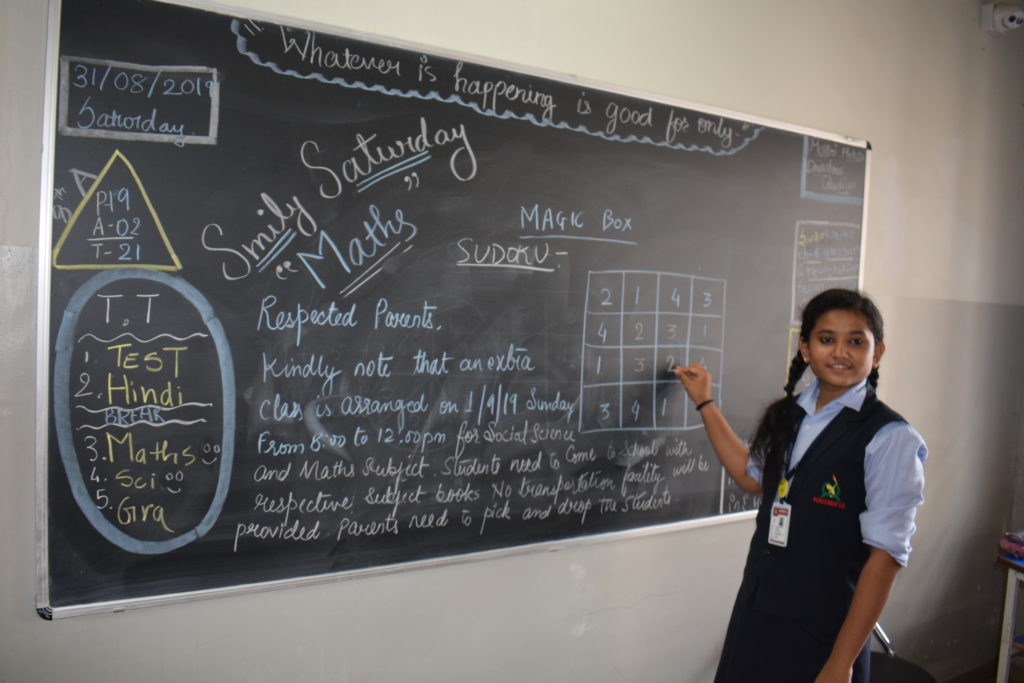 "Whatever is happening is good for only."
31/08/2019
Saturday
Smily Saturday
"Maths"
P-19
A-02
T-21
MAGIC BOX
SUDOKU:-
2 1 4 3
4 2 3 1
1 3 2
3 4 1
T.T
1. TEST
2. Hindi
BREAK
3. Maths
4. Sci
5. Gra
Respected Parents,
Kindly note that an extra
class is arranged on 1/9/19 Sunday
From 8:00 to 12:00pm for Social Science
and Maths Subject. Students need to Come to School with
respective Subject books No transportation facility will be
provided. Parents need to pick and drop The Students.